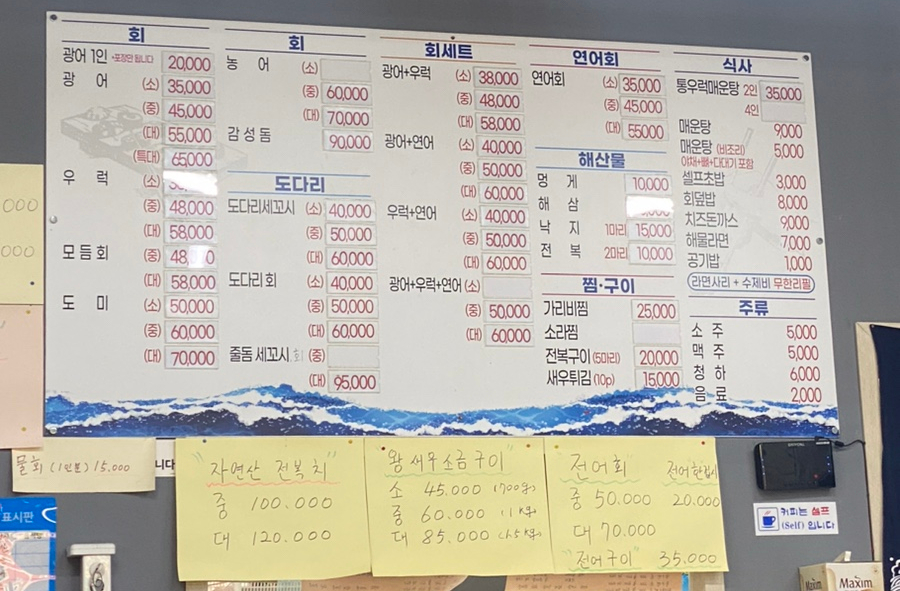 회
광어 1인 *포장만 됩니다 20,000
광어 (소) 35,000
(중) 45,000
(대) 55,000
(특대) 65,000
우럭 (소)
(중) 48,000
(대) 58,000
모듬회 (중)
(대) 58,000
도미 (소) 50,000
(중) 60,000
(대) 70,000
회
농어 (소)
(중) 60,000
(대) 70,000
감성돔 90,000
도다리
도다리세꼬시 (소) 40,000
(중) 50,000
(대) 60,000
도다리회 (소) 40,000
(중) 50,000
(대) 60,000
줄돔 세꼬시 회 (중)
(대) 95,000
회세트
광어+우럭 (소) 38,000
(중) 48,000
(대) 58,000
광어+연어 (소) 40,000
(중) 50,000
(대) 60,000
우럭+연어 (소) 40,000
(중) 50,000
(대) 60,000
광어+우럭+연어 (소)
(중) 50,000
(대) 60,000
연어회
연어회 (소) 35,000
(중) 45,000
(대) 55000
해산물
멍게 10,000
해삼
낙지 1마리 15,000
전복 2마리 10,000
찜·구이
가리비찜 25,000
소라찜
전복구이 (5마리) 20,000
새우튀김 (10p) 15,000
식사
통우럭매운탕 2인 35,000
4인
매운탕 9,000
매운탕 (비조리) 5,000
야채+뼈+다대기 포함
셀프초밥 3,000
회덮밥 8,000
치즈돈까스 9,000
해물라면 7,000
공기밥 1,000
라면사리 + 수제비 무한리필
주류
소주 5,000
맥주 5,000
청하 6,000
음료 2,000
000
000
물회 (1인분) 15.000
니다
표시판
"자연산 전복치"
중 100.000
대 120.000
"왕새우소금구이"
소 45.000 (700g)
중 60.000 (1kg)
대 85.000 (1.5kg)
"전어회" 전어한접시
중 50.000 20.000
대 70.000
"전어구이" 35.000
커피는 셀프
(Self) 입니다
Maxim
Maxim